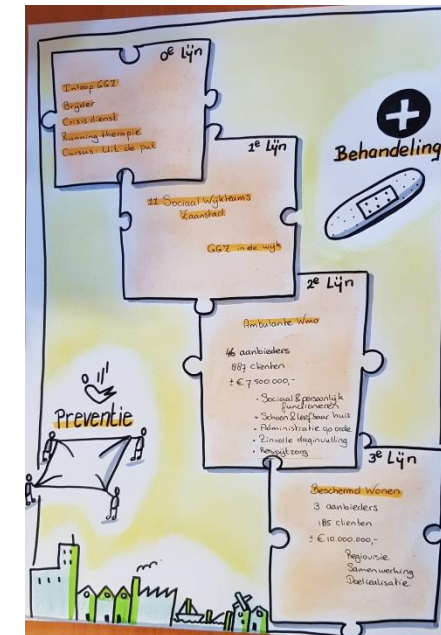 0e Lijn
Inloop GGZ
Brijder
Crisisdienst
Running therapie
Cursus: Uit de put
1e Lijn
11 Sociaal Wijkteams
Zaanstad
GGZ in de wijk
Behandeling
2e Lijn
Ambulante Wmo
46 aanbieders
887 clienten
± € 7.500.000,-
• Sociaal & persoonlijk
functioneren
• Schoon & leefbaar huis
• Administratie op orde
• Zinvolle daginvulling
• Respijtzorg
Preventie
3e Lijn
Beschermd Wonen
3 aanbieders
185 clienten
± € 10.000.000,-
Regiovisie
Samenwerking
Doelrealisatie